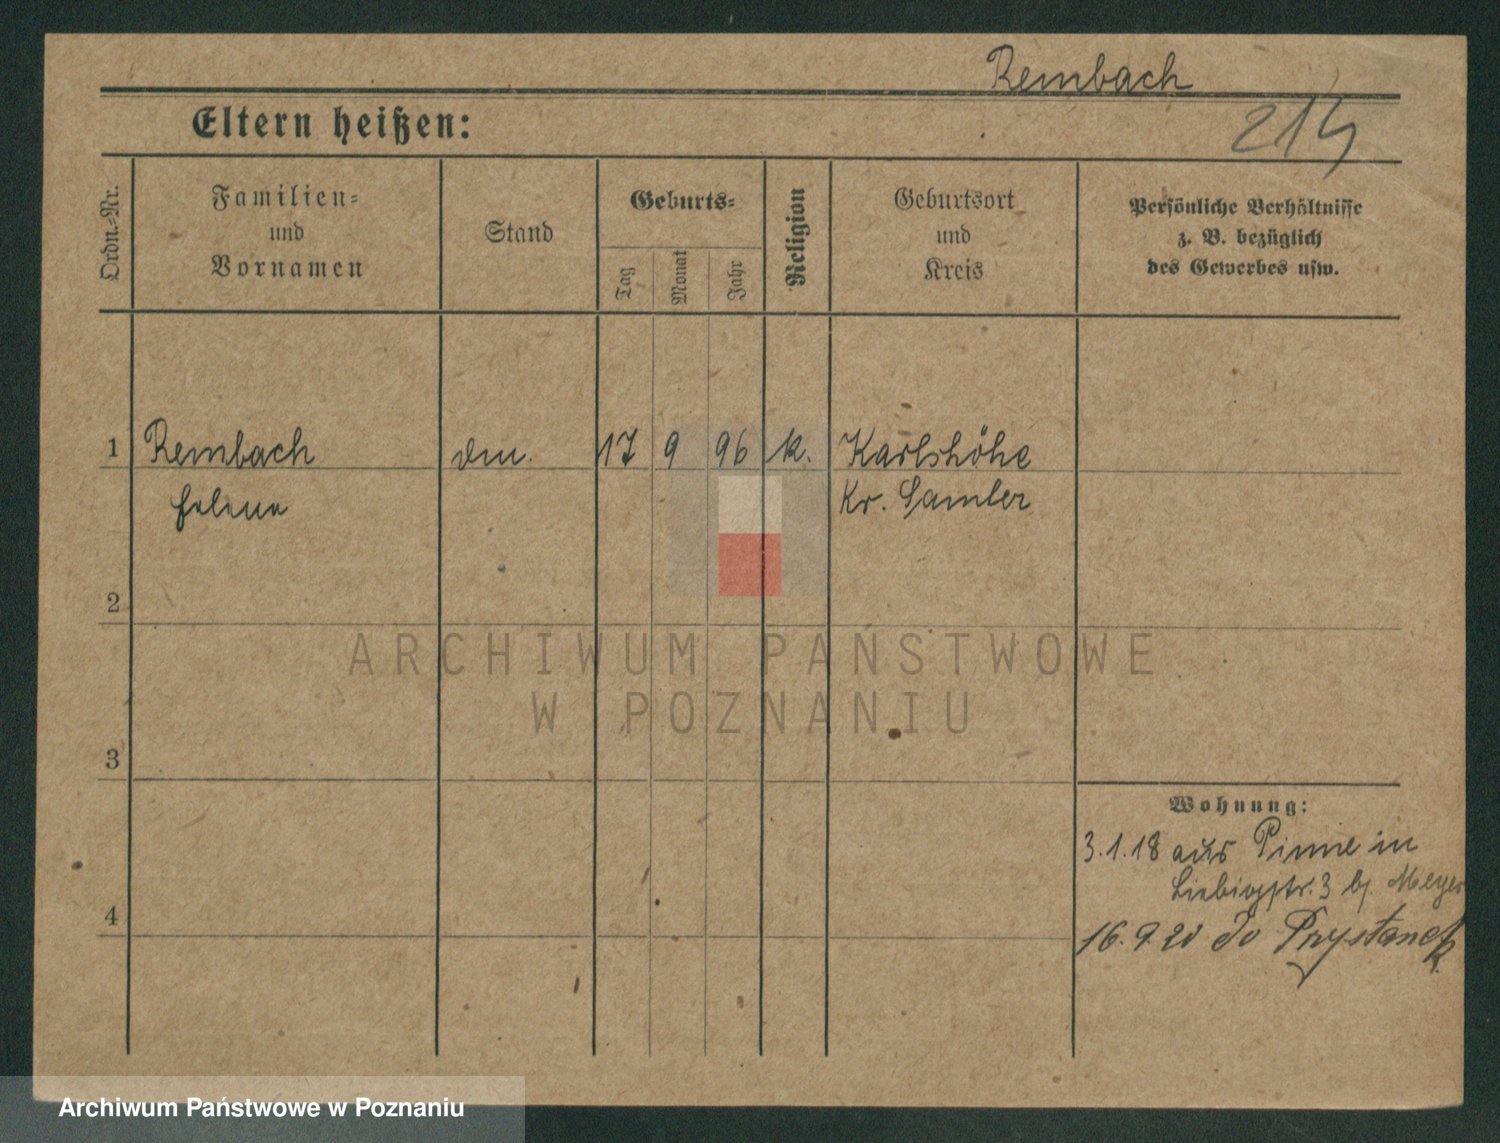 Rembach
Eltern heißen:
214
Ordn.-Nr.
Familien-
und
Vornamen
Stand
Geburts-
Tag
Monat
Jahr
Religion
Geburtsort
und
Kreis
Persönliche Verhältnisse
z. B. bezüglich
des Gewerbes usw.
1 Rembach dm. 17 9 96 k. Karlshöhe
Helene Kr. Samter
2
3
4
Wohnung:
3.1.18 aus Pinne in
Liebigstr. 3 bj. Meyer
16.9.20 Przystanek
ARCHIWUM PAŃSTWOWE
W POZNANIU
Archiwum Państwowe w Poznaniu